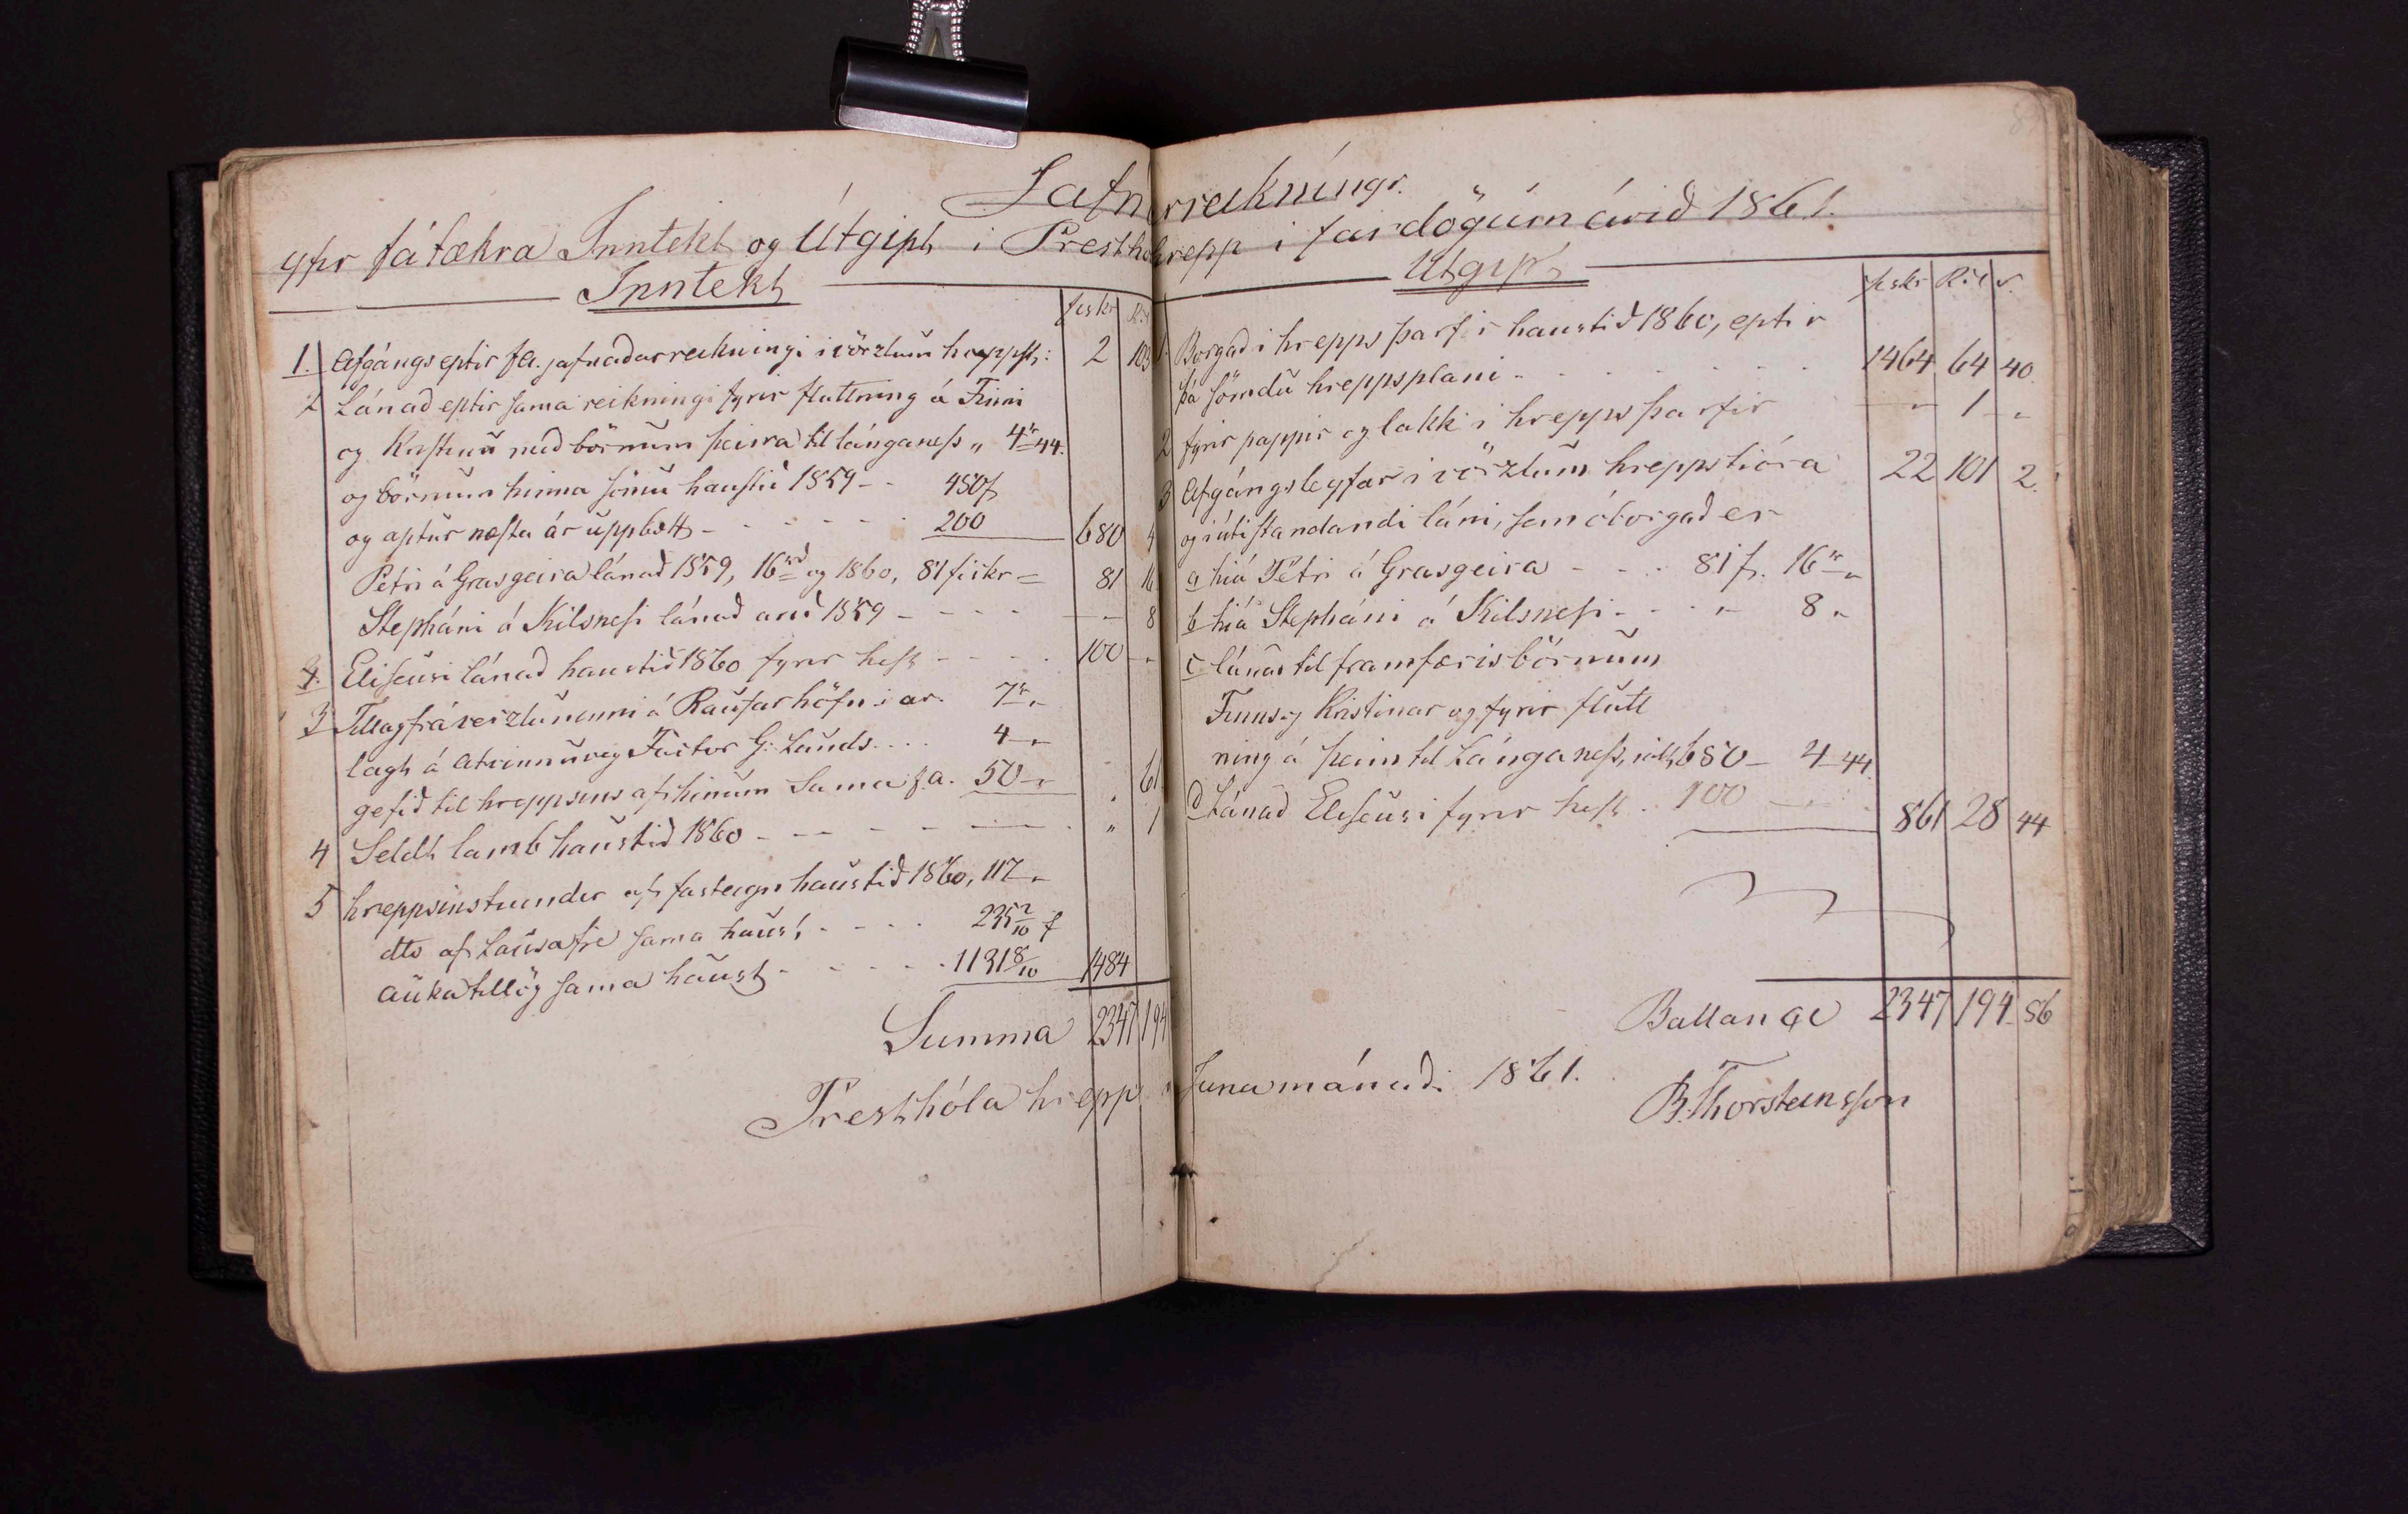 Jafnarreikningr.
yfir fátækra Inntekt og Útgipt i Presthólahrepp i fardögum árið 1861.
Inntekt
fiskr Rd
1. Afgángs eptir f.a. jafnaðarreikningi i vörzlum hreppst: 2 103
2 Lánað eptir sama reikningi fyrir fluttning á Finni
og Kristínu með börnum þeirra til lánganess „ 4r 44.
og börnum hinna sömu haustið 1859 - - 480f
og aptur næsta ár uppbætt - - - - - - 200 680 4
Petri á Grasgeira lánað 1859, 16rd og 1860, 81 fiskr = 81 16
Stepháni á Kilsnesi lánað arið 1859 - - - - - „ 8
4. Eliseusi lánað haustið 1860 fyrir hest - - - - 100 „
3 Tillag frá verzluninni á Raufarhöfn i ar. 7r „
lagt á atvinnuveg Factor G: Lunds . . . 4 „
gefið til hreppsins af hinum Sama f.a. 50 „ „ 61
4 Seldt lamb haustið 1860 - - - - - - - „ 1
5 hreppsinstiunder af fasteign haustið 1860, 117 „
dto af Lausafje sama haust - - - - 235 2/10 f
aukatillög sama haust - - - - - 1131 8/10 1484
Summa 2347 194
Presthólahrepp i
Útgipt
fiskr Rd s.
1. Borgað i hrepps þarfir haustið 1860, eptir
þá sömdu hreppsplani - - - - - - - 1464 64 40.
2 fyrir pappir og lakk i hrepps þarfir „ 1 „
3 Afgángs leyfar i vörzlum hreppstióra 22 101 2.
og i útistandandi láni, sem óborgað er
a hiá Pétri á Grasgeira - - - 81 f. 16r „
b hiá Stepháni á Kilsnesi - - - „ 8 „
c lánað til framfæris börnum
Finns og Kristinar og fyrir flutt
ning á þeim til Lánganess, 680 - 4 - 44.
d Lánað Eliseusi fyrir hest . 100 861 28 44
Ballance 2347 194 86
Juni mánuði 1861.
B. Thorsteinsson